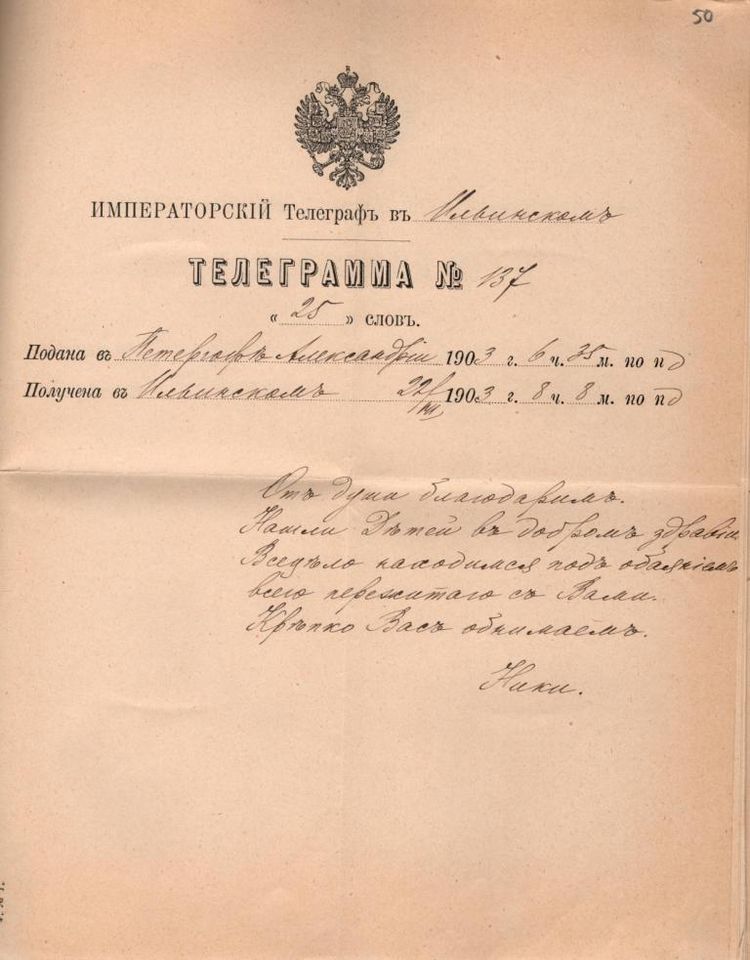 50
ИМПЕРАТОРСКІЙ Телеграфъ въ Ильинскомъ
ТЕЛЕГРАММА № 137
« 25 » словъ.
Подана въ Петергофѣ Александріи 1903 г. 6 ч. 35 м. по пд
Получена въ Ильинскомъ 22/VII 1903 г. 8 ч. 8 м. по пд
Отъ души благодаримъ.
Нашли Дѣтей въ добромъ здравіи.
Всецѣло находимся подъ обаяніемъ
всего пережитаго съ Вами.
Крѣпко Васъ обнимаемъ.
Ники.